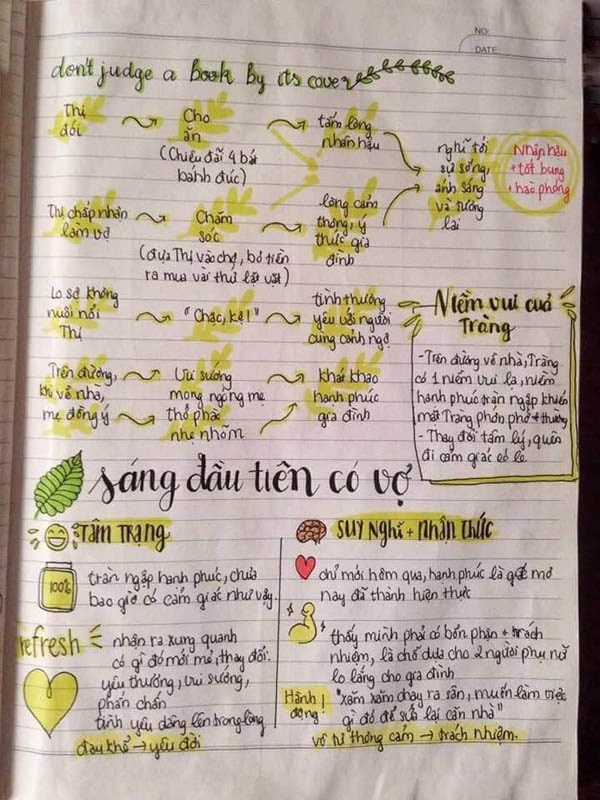 NO:
DATE:
don't judge a book by its cover
Thị
đói
Cho
ăn
(Chiêu đãi 4 bát
bánh đúc)
tấm lòng
nhân hậu
nghĩ tới
sự sống,
ánh sáng
và tương
lai
Nhân hậu
+ tốt bụng
+ hào phóng
Thị chấp nhận
làm vợ
Chăm
sóc
(đưa Thị vào chợ, bỏ tiền
ra mua vài thứ lặt vặt)
lòng cảm
thông, ý
thức gia
đình
Lo sợ không
nuôi nổi
Thị
"Chậc, kệ!"
tình thương
yêu với người
cùng cảnh ngộ
Trên đường,
khi về nhà,
mẹ đồng ý
Vui sướng
mong ngóng mẹ
thở phào
nhẹ nhõm
Khát khao
hạnh phúc
gia đình
Niềm vui của
Tràng
- Trên đường về nhà, Tràng
có 1 niềm vui lạ, niềm
hạnh phúc tràn ngập khiến
mặt Tràng phớn phở # thường
- Thay đổi tâm lý, quên
đi cảm giác
sáng đầu tiên có vợ
Tâm Trạng
100%
tràn ngập hạnh phúc, chưa
bao giờ có cảm giác như vậy.
refresh
nhận ra xung quanh
có gì đó mới mẻ, thay đổi.
yêu thương, vui sướng,
phấn chấn
tình yêu dâng lên trong lòng
đau khổ → yêu đời
Suy Nghĩ + nhận thức
chỉ mới hôm qua, hạnh phúc là giấc mơ
nay đã thành hiện thực
thấy mình phải có bổn phận + trách
nhiệm, là chỗ dựa cho 2 người phụ nữ
lo lắng cho gia đình
Hành
động!
"xăm xăm chạy ra sân, muốn làm việc
gì đó để sửa lại căn nhà"
vô tư thông cảm → trách nhiệm.